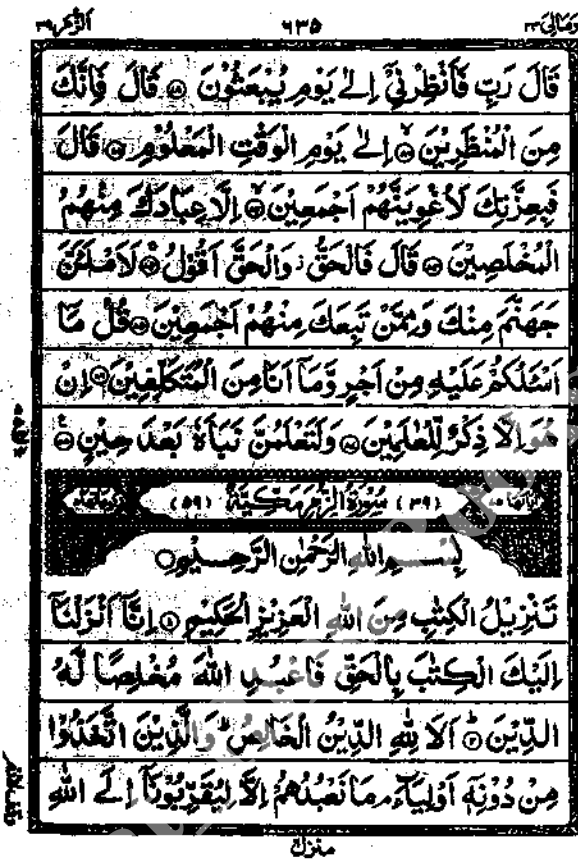 الزمر ٣٩
٦٣٥
ومالی ٢٣
قَالَ رَبِّ فَاَنْظِرْنِيْۤ اِلٰى يَوْمِ يُبْعَثُوْنَ ۝ قَالَ فَاِنَّكَ
مِنَ الْمُنْظَرِيْنَ ۝ اِلٰى يَوْمِ الْوَقْتِ الْمَعْلُوْمِ ۝ قَالَ
فَبِعِزَّتِكَ لَاُغْوِيَنَّهُمْ اَجْمَعِيْنَ ۝ اِلَّا عِبَادَكَ مِنْهُمُ
الْمُخْلَصِيْنَ ۝ قَالَ فَالْحَقُّ ؗ وَالْحَقَّ اَقُوْلُ ۝ لَاَمْلَـَٔنَّ
جَهَنَّمَ مِنْكَ وَمِمَّنْ تَبِعَكَ مِنْهُمْ اَجْمَعِيْنَ ۝ قُلْ مَاۤ
اَسْـَٔلُكُمْ عَلَيْهِ مِنْ اَجْرٍ وَّمَاۤ اَنَا مِنَ الْمُتَكَلِّفِيْنَ ۝ اِنْ
هُوَ اِلَّا ذِكْرٌ لِّلْعٰلَمِيْنَ ۝ وَلَتَعْلَمُنَّ نَبَاَهٗ بَعْدَ حِيْنٍ ۝
(٣٩) سُوْرَةُ الزُّمَرِ مَكِّيَّةٌ (٥٩)
بِسْمِ اللّٰهِ الرَّحْمٰنِ الرَّحِيْمِ ۝
تَنْزِيْلُ الْكِتٰبِ مِنَ اللّٰهِ الْعَزِيْزِ الْحَكِيْمِ ۝ اِنَّاۤ اَنْزَلْنَاۤ
اِلَيْكَ الْكِتٰبَ بِالْحَقِّ فَاعْبُدِ اللّٰهَ مُخْلِصًا لَّهُ
الدِّيْنَ ۝ اَلَا لِلّٰهِ الدِّيْنُ الْخَالِصُ ؕ وَالَّذِيْنَ اتَّخَذُوْا
مِنْ دُوْنِهٖۤ اَوْلِيَآءَ ۘ مَا نَعْبُدُهُمْ اِلَّا لِيُقَرِّبُوْنَاۤ اِلَى اللّٰهِ
منزل